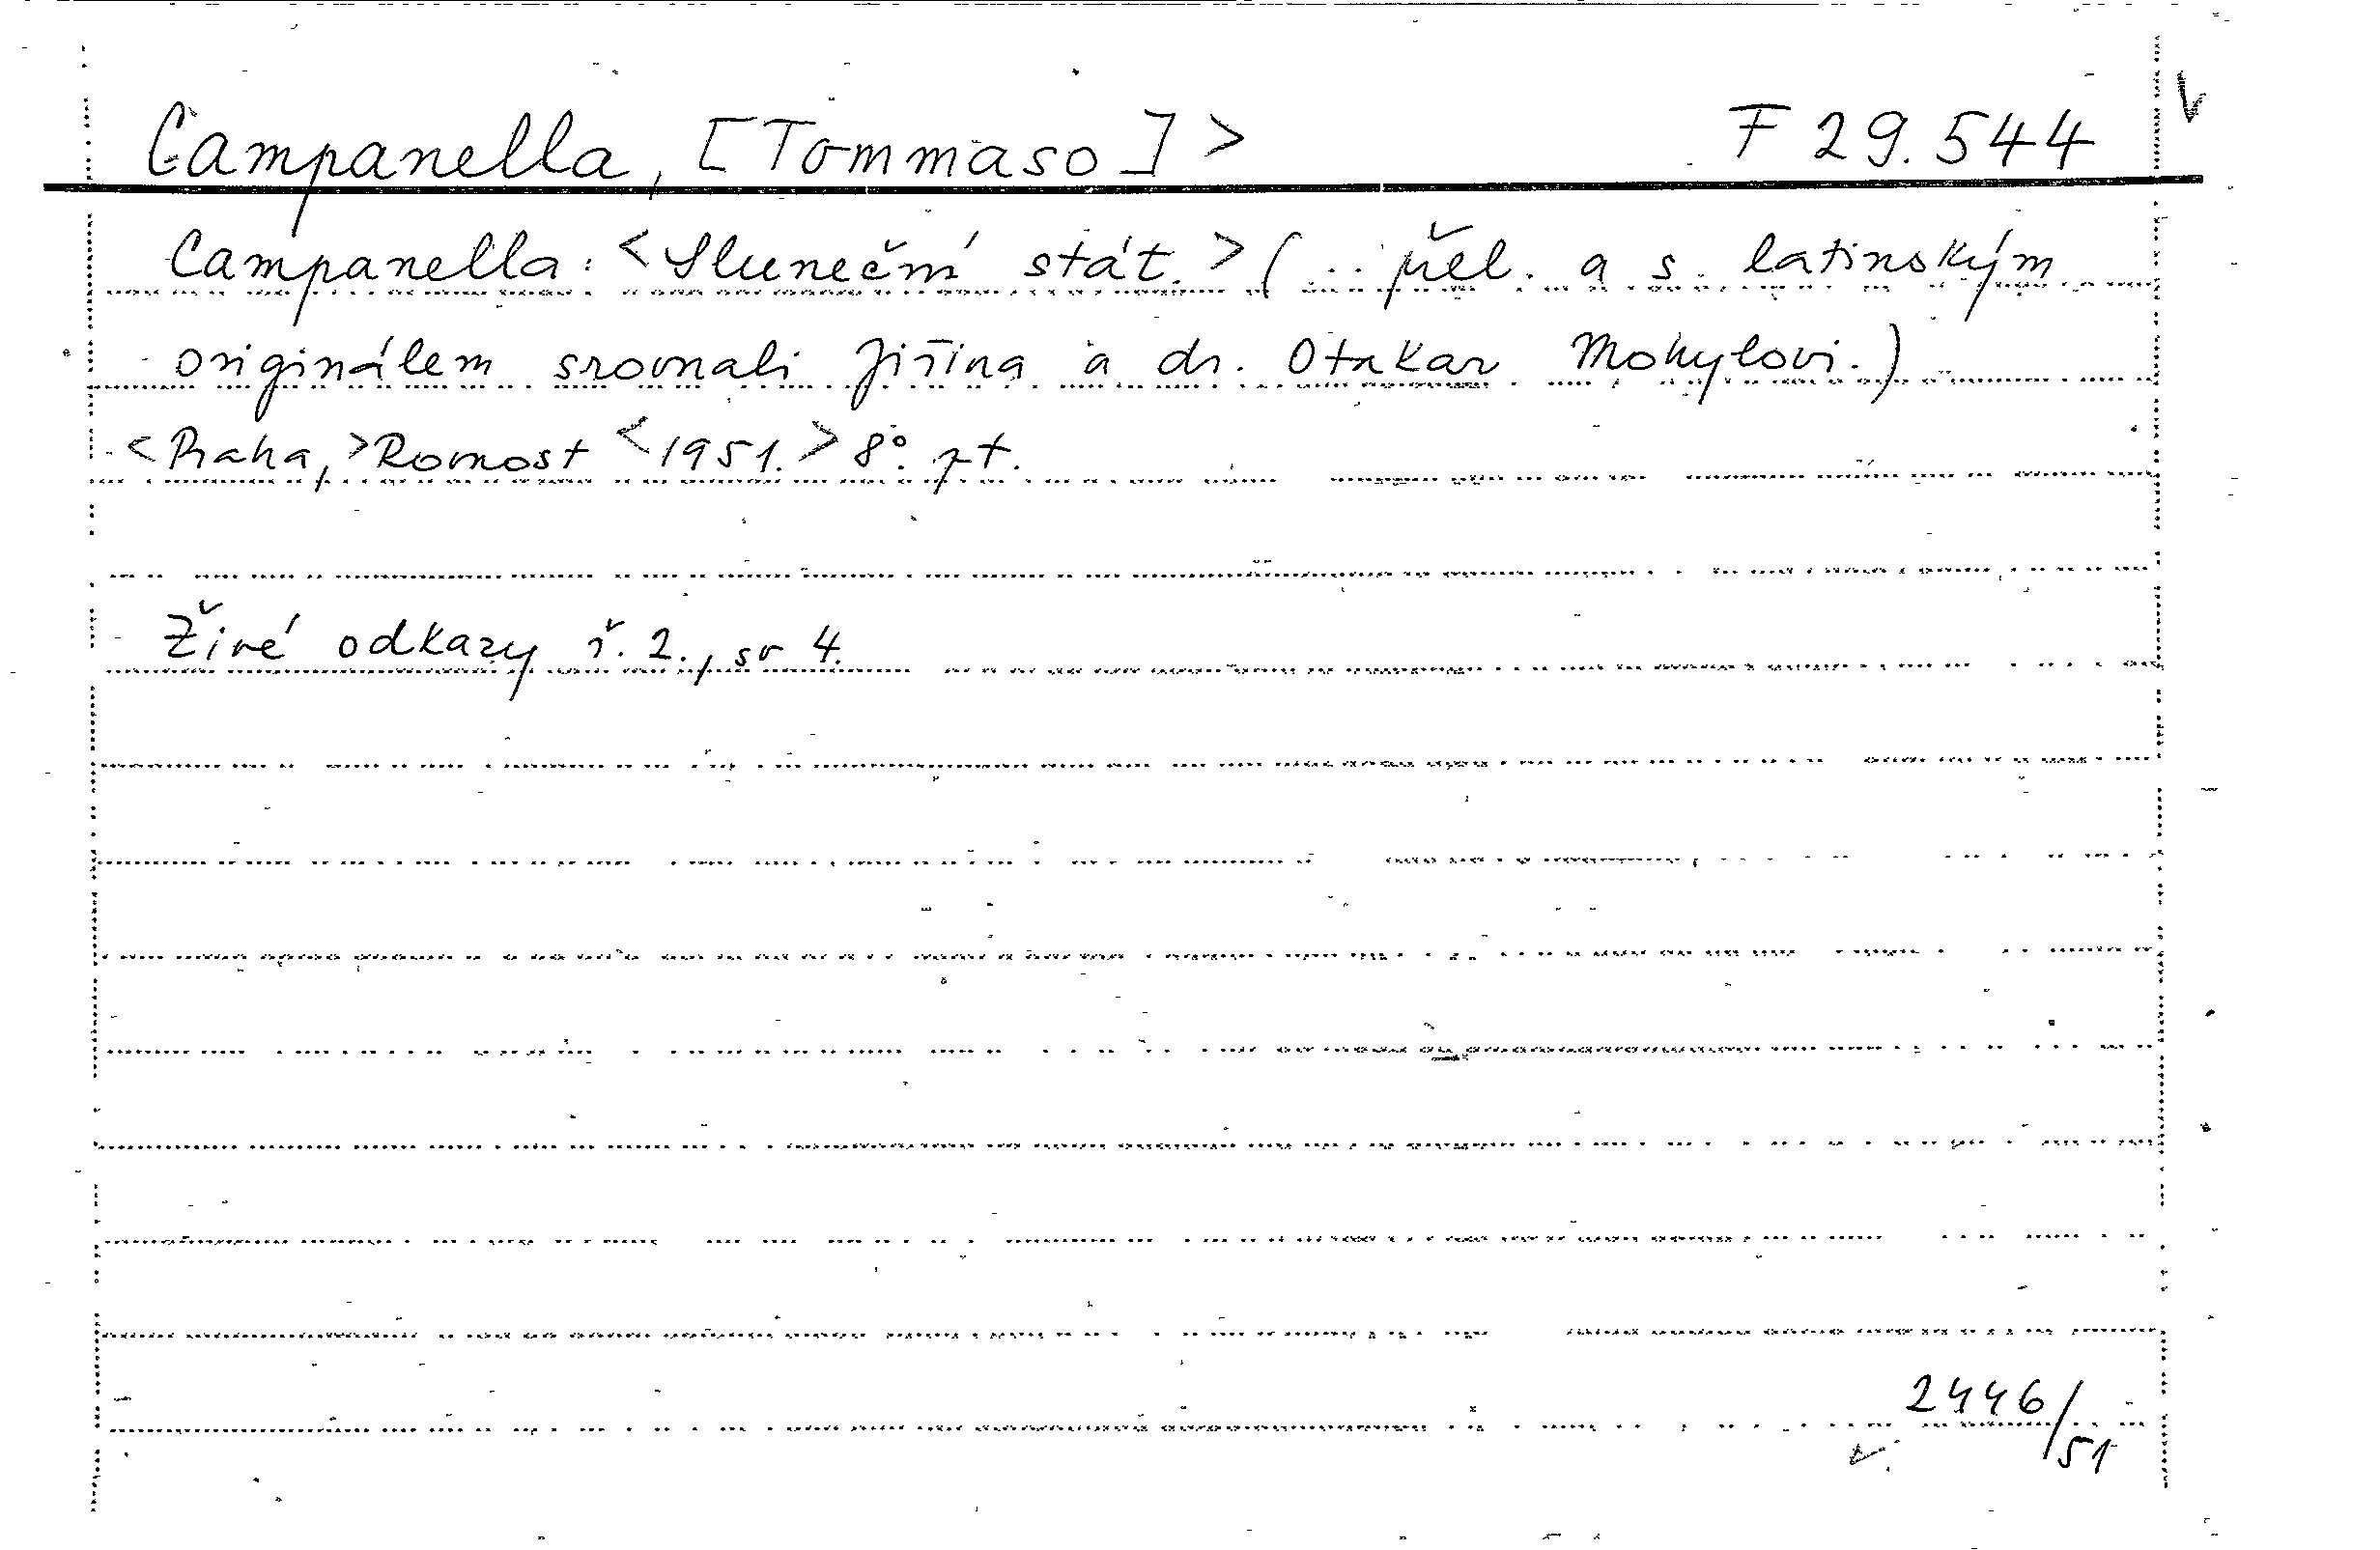 Campanella, [Tommaso] > F 29.544
Campanella: <Sluneční stát.> (.. přel. a s. latinským
originálem srovnali Jiřina a dr. Otakar Mohylovi.)
<Praha,> Rovnost <1951.> 8°. pt.
Živé odkazy ř. 2., sv 4.
2446/51